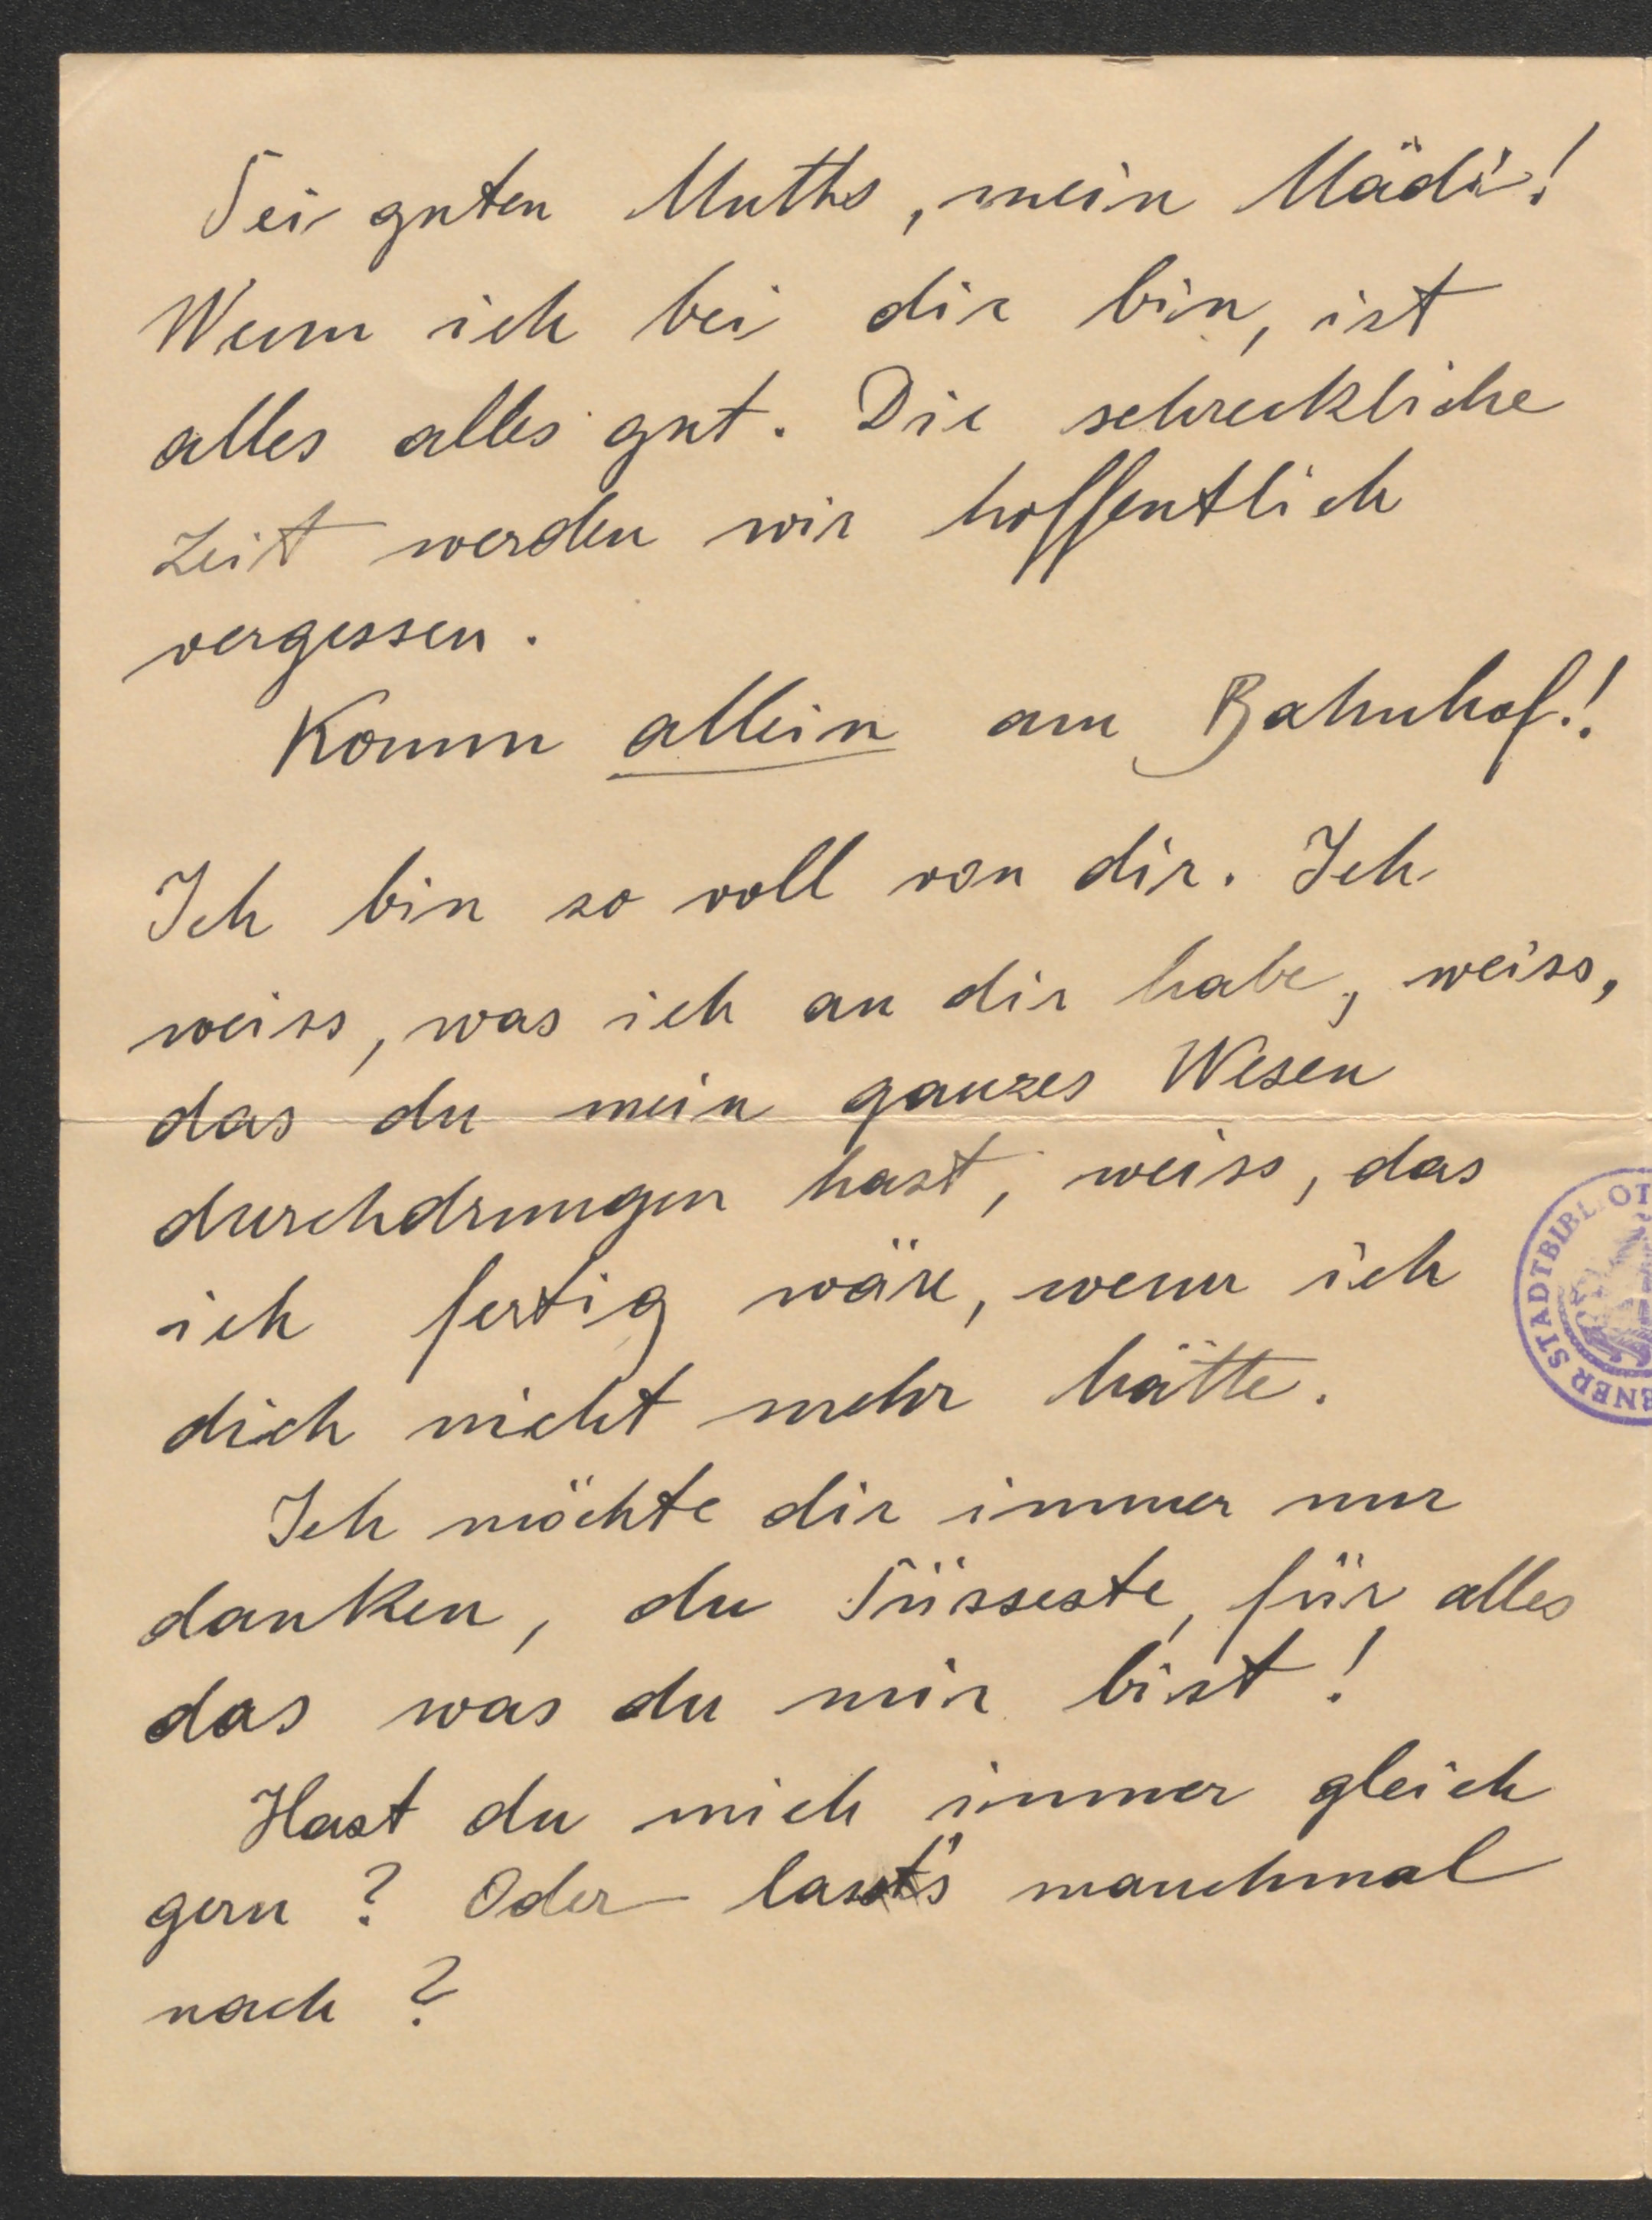 Sei guten Muths, mein Mädi!
Wenn ich bei dir bin, ist
alles alles gut. Die schreckliche
Zeit werden wir hoffentlich
vergessen.
Komm allein am Bahnhof!
Ich bin so voll von dir. Ich
weiss, was ich an dir habe, weiss,
das du mein ganzes Wesen
durchdrungen hast, weiss, das
ich fertig wäre, wenn ich
dich nicht mehr hätte.
Ich möchte dir immer nur
danken, du Süsseste, für alles
das was du mir bist!
Hast du mich immer gleich
gern? Oder lasst's manchmal
nach?
BNER STADTBIBLIOT